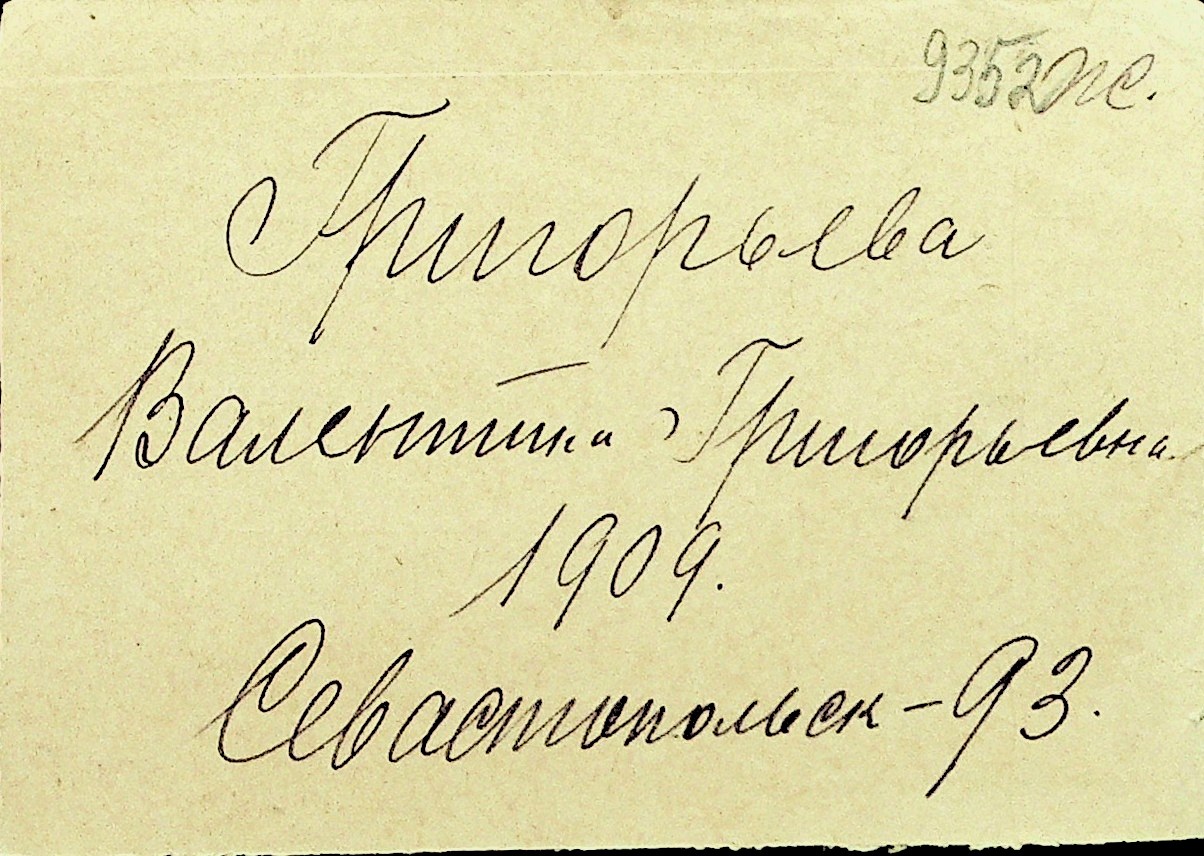 9352 ж.
Григорьева
Валентина Григорьевна
1909.
Севастопольск - 93.